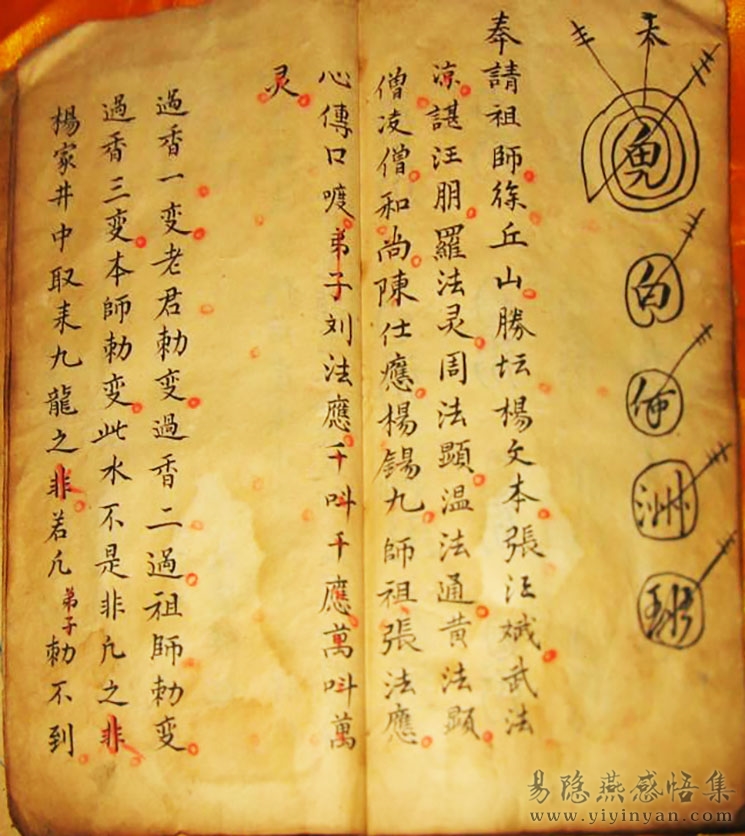 白
洲
奉請祖師徐丘山勝坛楊文本張江斌武法
凉諶汪朋羅法灵周法顯温法通黄法顕
僧凌僧和尚陳仕應楊錫九師祖張法應
心傳口嗄弟子刘法應千呌千應萬呌萬
灵
過香一变老君勅变過香二過祖師勅变
過香三变本師勅变此水不是非凢之非
楊家井中取耒九龍之非若凢弟子勅不到
易隐燕感悟集
www.yiyinyan.com